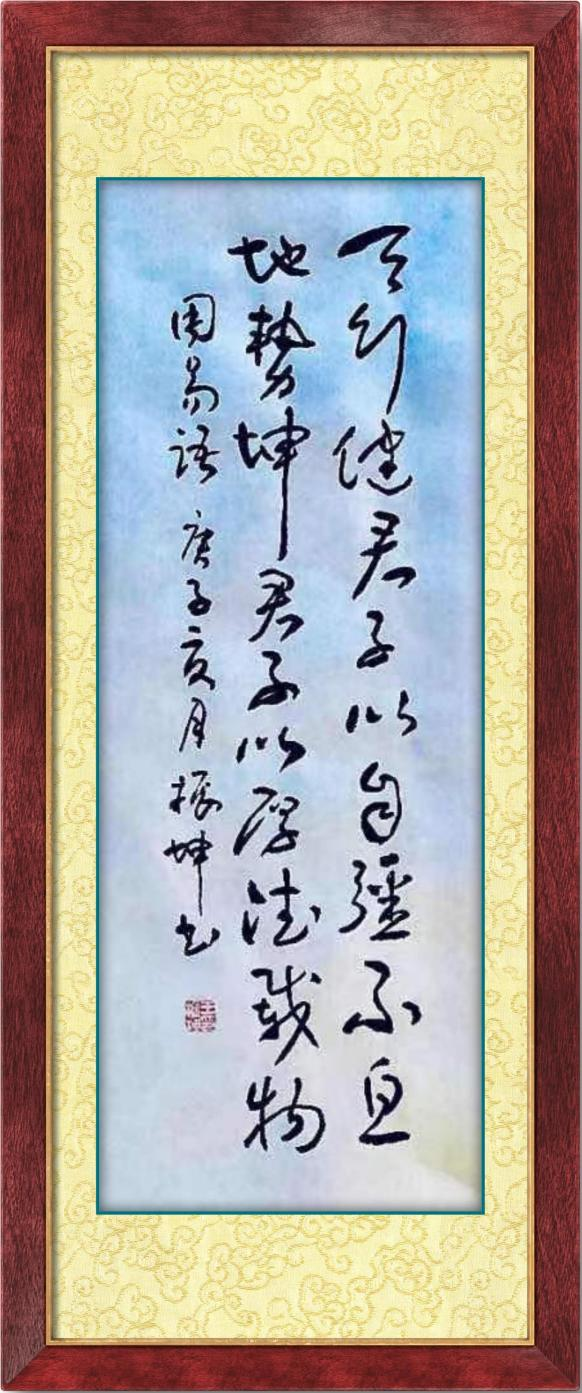 天行健君子以自强不息
地势坤君子以厚德载物
周易语 庚子亥月振坤书